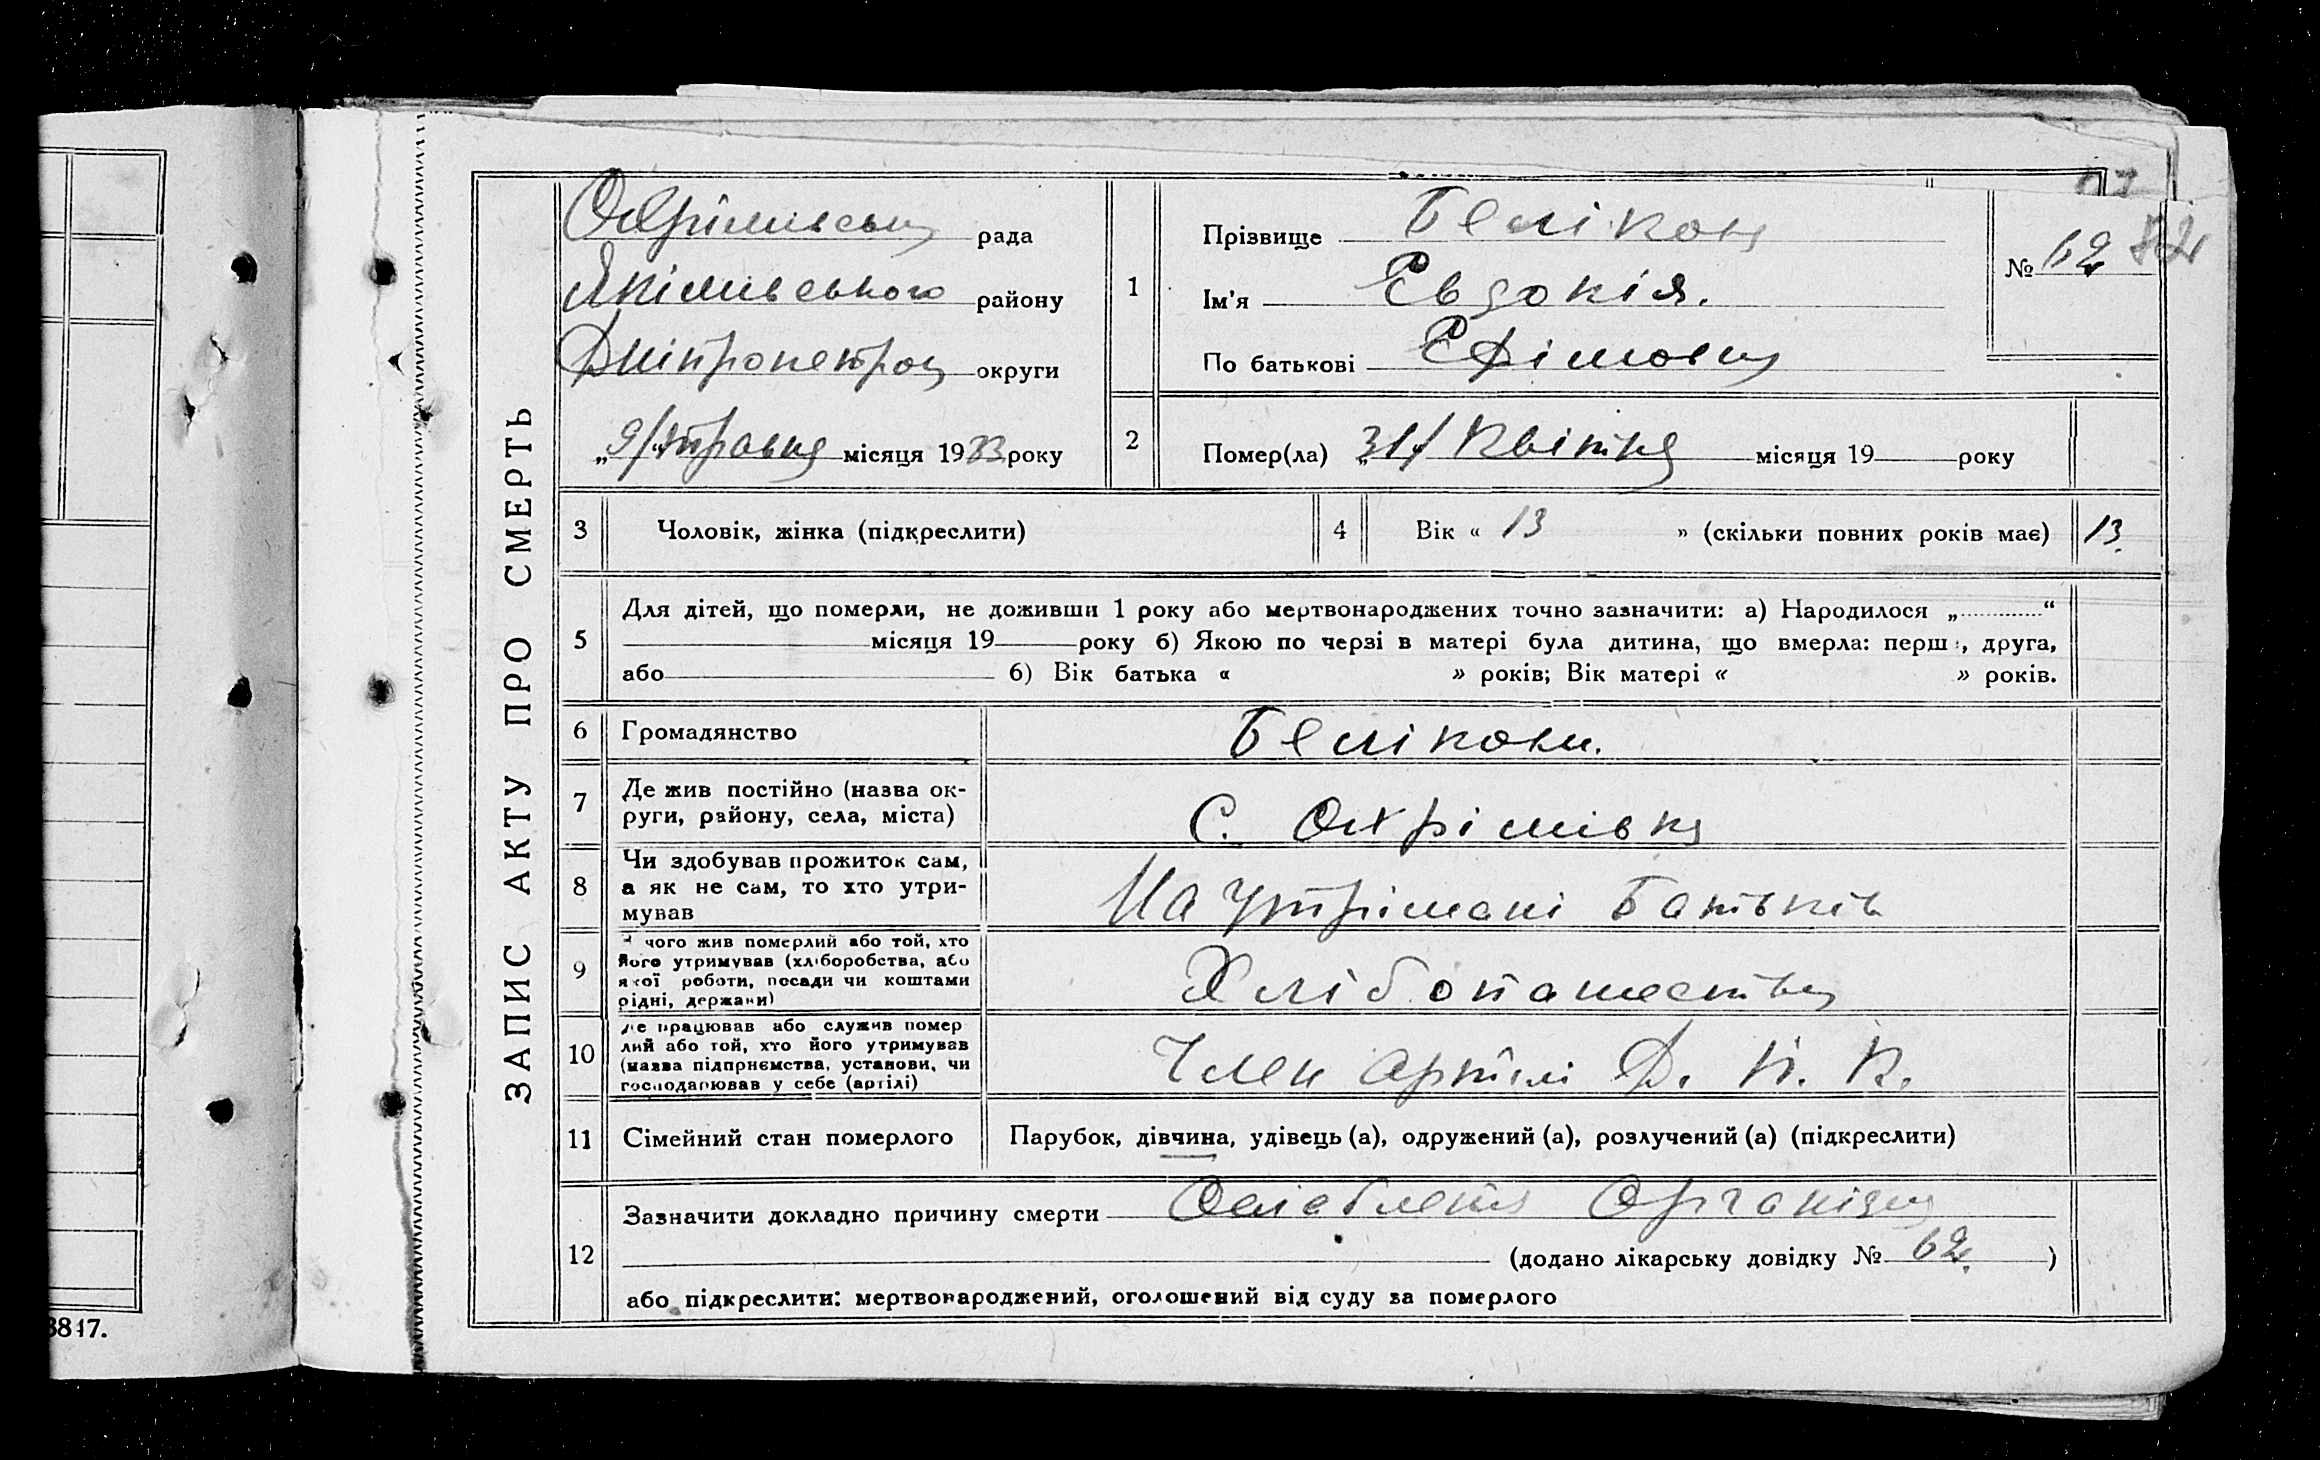 ЗАПИС АКТУ ПРО СМЕРТЬ
Охрімивська рада
Якімивського району
Дніпропетров округи
„9/травня місяця 1933 року
1
Прізвище Белікова
Ім'я Евдокія.
По батькові Ефімовна
№ 62 82
2
Помер(ла) „31/ Квітня місяця 19 року
3
Чоловік, жінка (підкреслити)
4
Вік « 13 » (скільки повних років має)
13.
5
Для дітей, що померли, не доживши 1 року або мертвонароджених точно зазначити: а) Народилося „ “
місяця 19 року б) Якою по черзі в матері була дитина, що вмерла: перша, друга,
або б) Вік батька « » років; Вік матері « » років.
6
Громадянство
Белікови.
7
Де жив постійно (назва ок-
руги, району, села, міста)
С. Охрімівка
8
Чи здобував прожиток сам,
а як не сам, то хто утри-
мував
На утрімані Батьків
9
чого жив померлий або той, хто
його утримував (хліборобства, або
якої роботи, посади чи коштами
рідні, держави)
Хлібопашества
10
Де працював або служив помер
лий або той, хто його утримував
(назва підприємства, установи, чи
господарював у себе (артілі)
Член артілі Д. Н. К.
11
Сімейний стан померлого
Парубок, дівчина, удівець (а), одружений (а), розлучений (а) (підкреслити)
12
Зазначити докладно причину смерти Ослабления Организма
(додано лікарську довідку № 62. )
або підкреслити: мертвонароджений, оголошений від суду за померлого
3847.